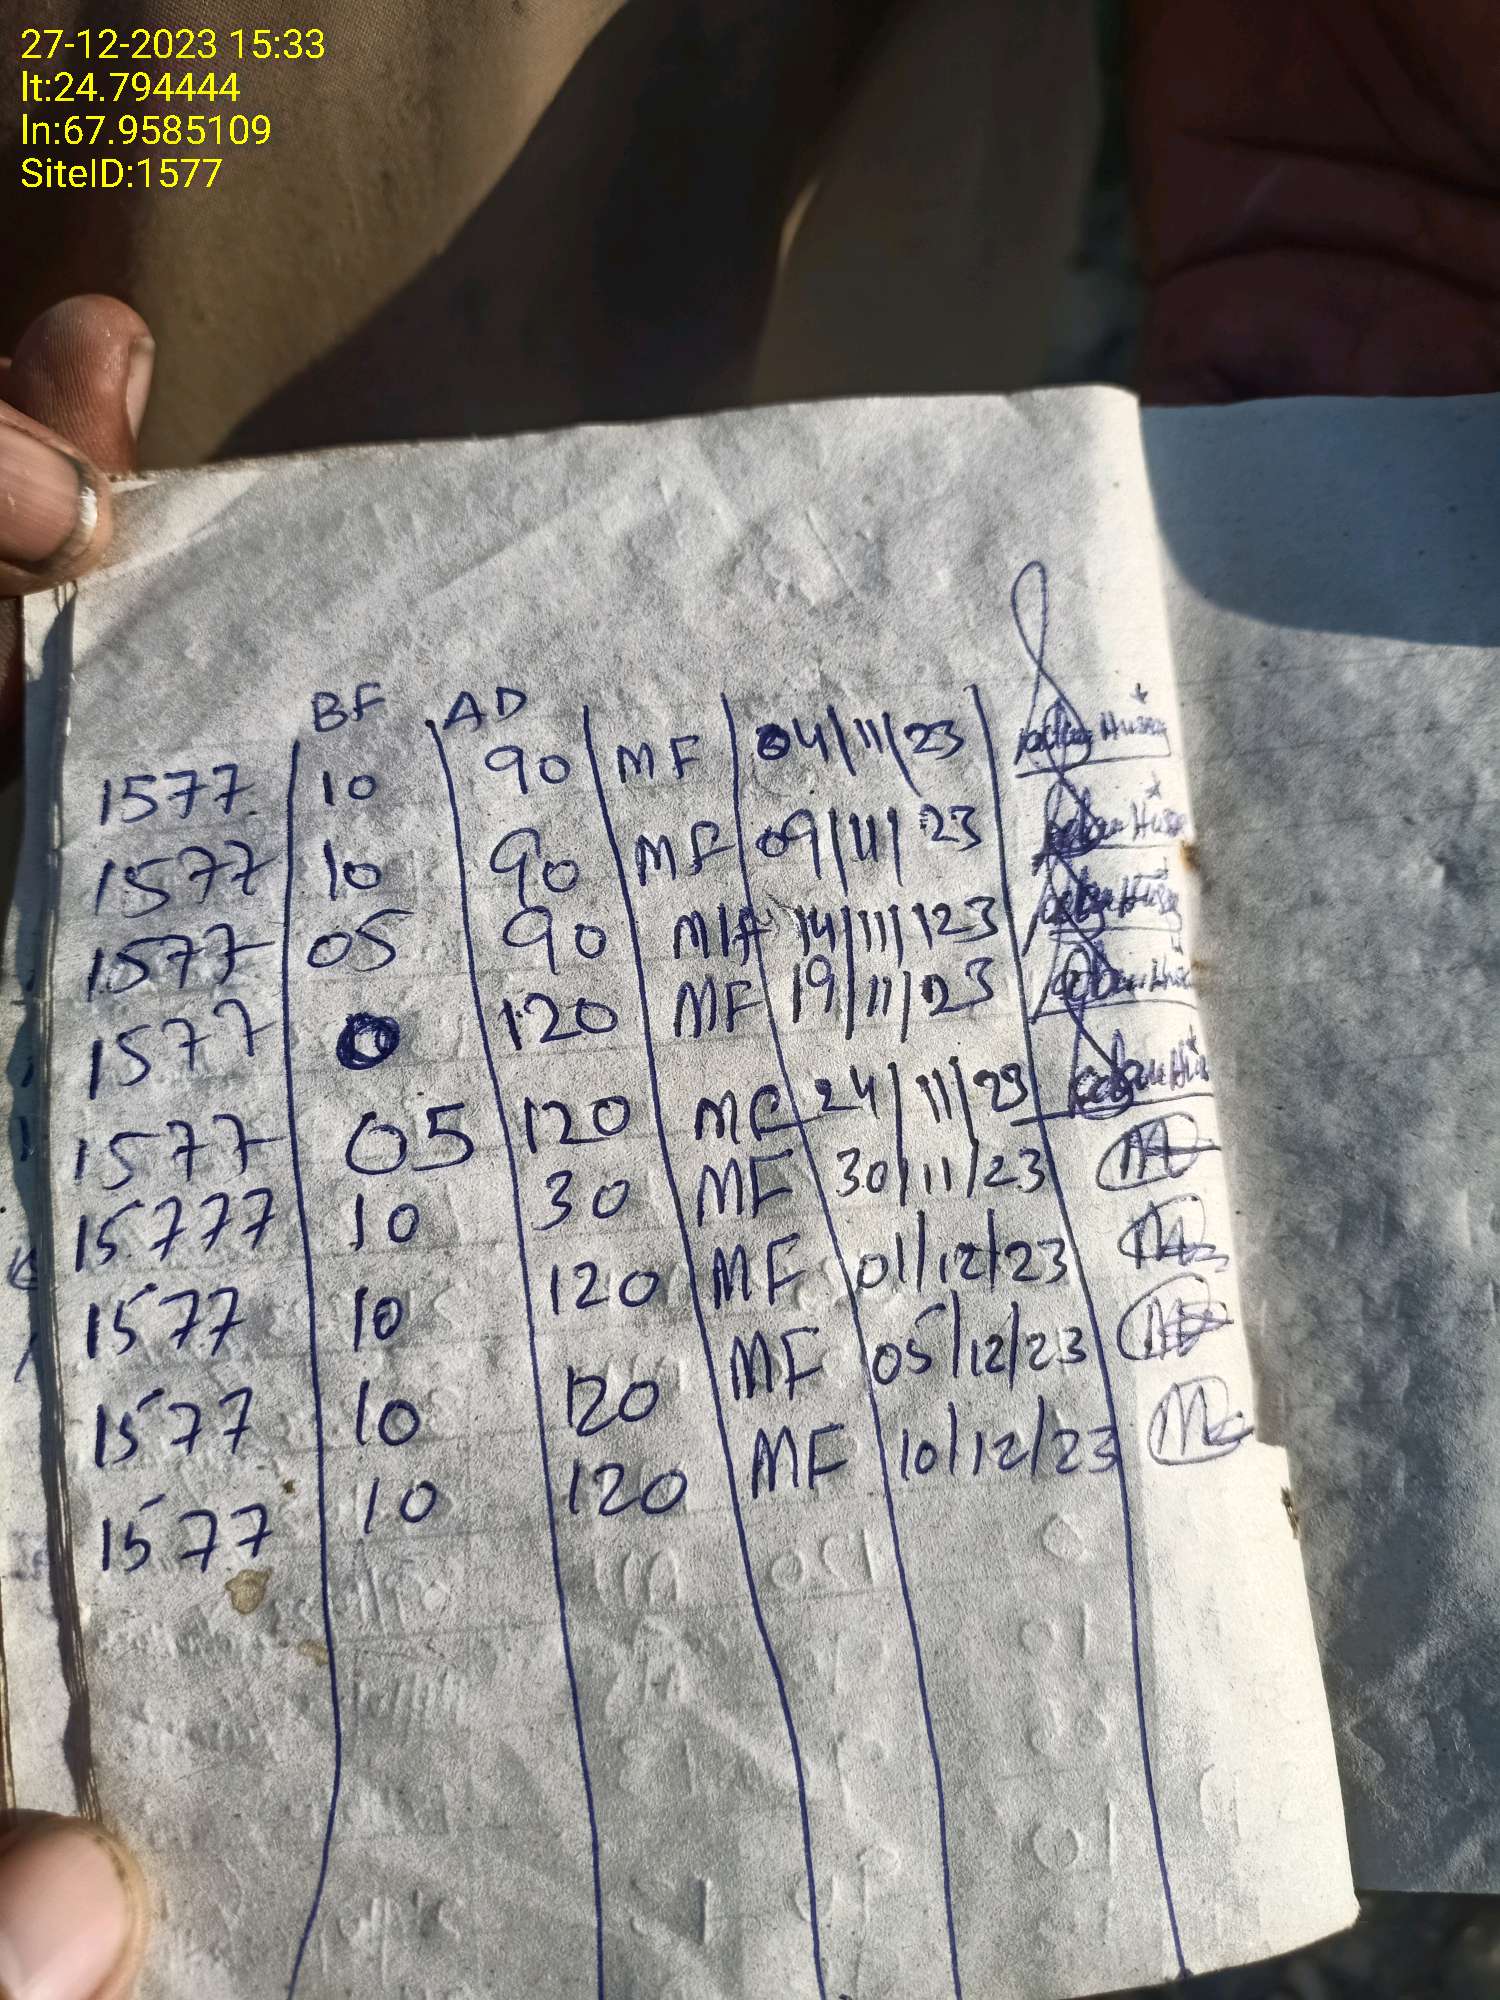 27-12-2023 15:33
lt:24.794444
ln:67.9585109
SiteID:1577
BF AD
1577 10 90 MF 04/11/23
1577 10 90 MF 09/11/23
1577 05 90 14/11/23
1577 0 120 MF 19/11/23
1577 05 120 MF 24/11/23
15777 10 30 MF 30/11/23
1577 10 120 MF 01/12/23
1577 10 120 MF 05/12/23
1577 10 120 MF 10/12/23